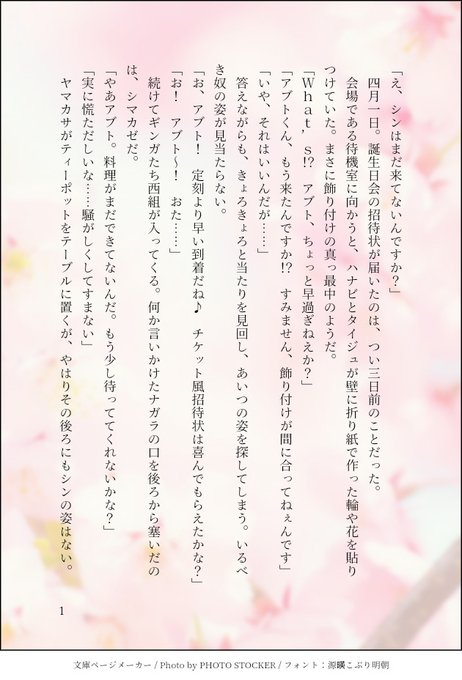 「え、シンはまだ来てないんですか？」
　四月一日。誕生日会の招待状が届いたのは、つい三日前のことだった。
　会場である待機室に向かうと、ハナビとタイジュが壁に折り紙で作った輪や花を貼り
つけていた。まさに飾り付けの真っ最中のようだ。
「Ｗｈａｔ'ｓ!?　アブト、ちょっと早過ぎねえか？」
「アブトくん、もう来たんですか!?　すみません、飾り付けが間に合ってねぇんです」
「いや、それはいいんだが……」
　答えながらも、きょろきょろと当たりを見回し、あいつの姿を探してしまう。いるべ
き奴の姿が見当たらない。
「お、アブト！　定刻より早い到着だね♪　チケット風招待状は喜んでもらえたかな？」
「お！　アブト～！　おた……」
　続けてギンガたち西組が入ってくる。何か言いかけたナガラの口を後ろから塞いだの
は、シマカゼだ。
「やあアブト。料理がまだできてないんだ。もう少し待っててくれないかな？」
「実に慌ただしいな……騒がしくしてすまない」
　ヤマカサがティーポットをテーブルに置くが、やはりその後ろにもシンの姿はない。
1
文庫ページメーカー / Photo by PHOTO STOCKER / フォント：源暎こぶり明朝